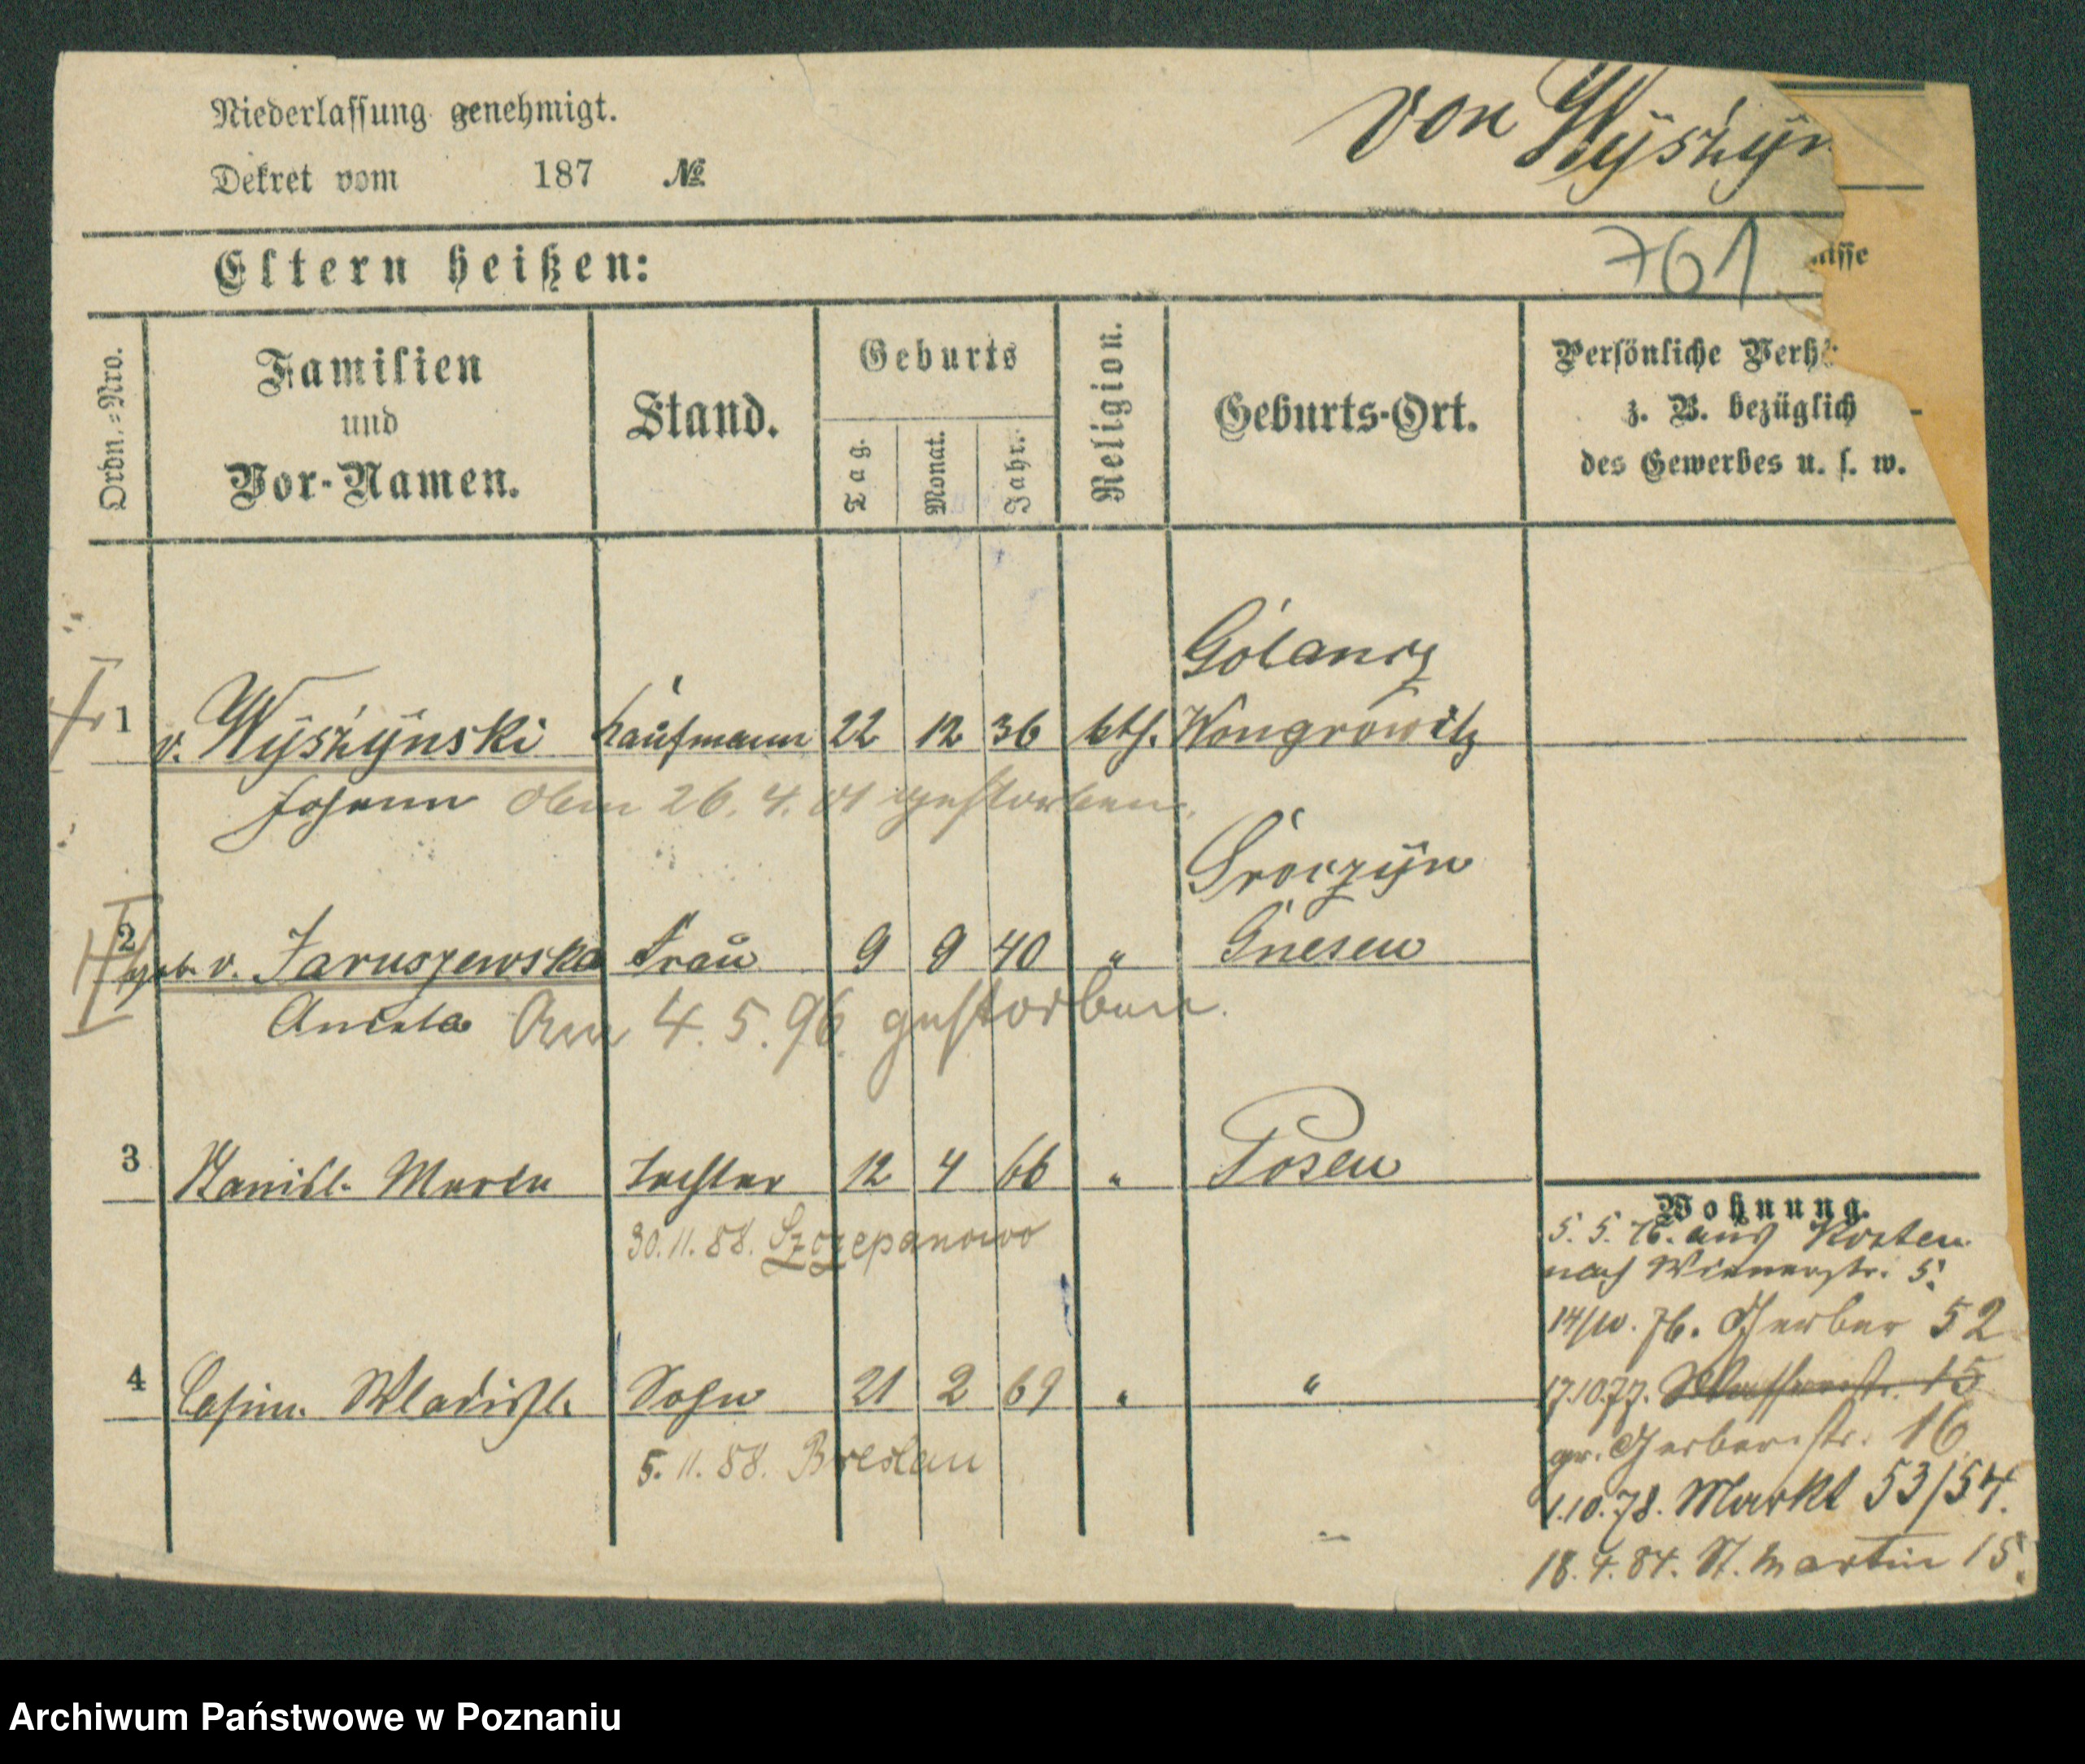 Niederlassung genehmigt.
Dekret vom 187 №
von Wyszyn
Eltern heißen:
761
nisse
Ordn.=Nro.
Familien
und
Vor-Namen.
Stand.
Geburts
Tag.
Monat.
Jahr.
Religion.
Geburts-Ort.
Persönliche Verh
z. B. bezüglich
des Gewerbes u. s. w.
Golancz
1 v. Wyszynski Kaufmann 22 12 36 kth. Wongrowitz
Johann 26. 4. 01 gestorben.
Sroczyn
2 geb. v. Jaruszewska Frau 9 9 40 " Gnesen
Aniela Am 4. 5. 96. gestorben.
3 Stanisl. Maria Tochter 12 4 66 " Posen
30. 11. 88. Szczepanowo
4 Casim. Wladisl. Sohn 21 2 69 " "
5. 11. 88. Breslau
Wohnung.
5. 5. 76. aus Kosten
nach Wienerstr. 5.
14/10. 76. Gerber 52
17.10.77. Wasserstr. 15
gr. Gerberstr. 16
1.10.78. Markt 53/54.
18. 4. 84. St. Martin 15.
Archiwum Państwowe w Poznaniu